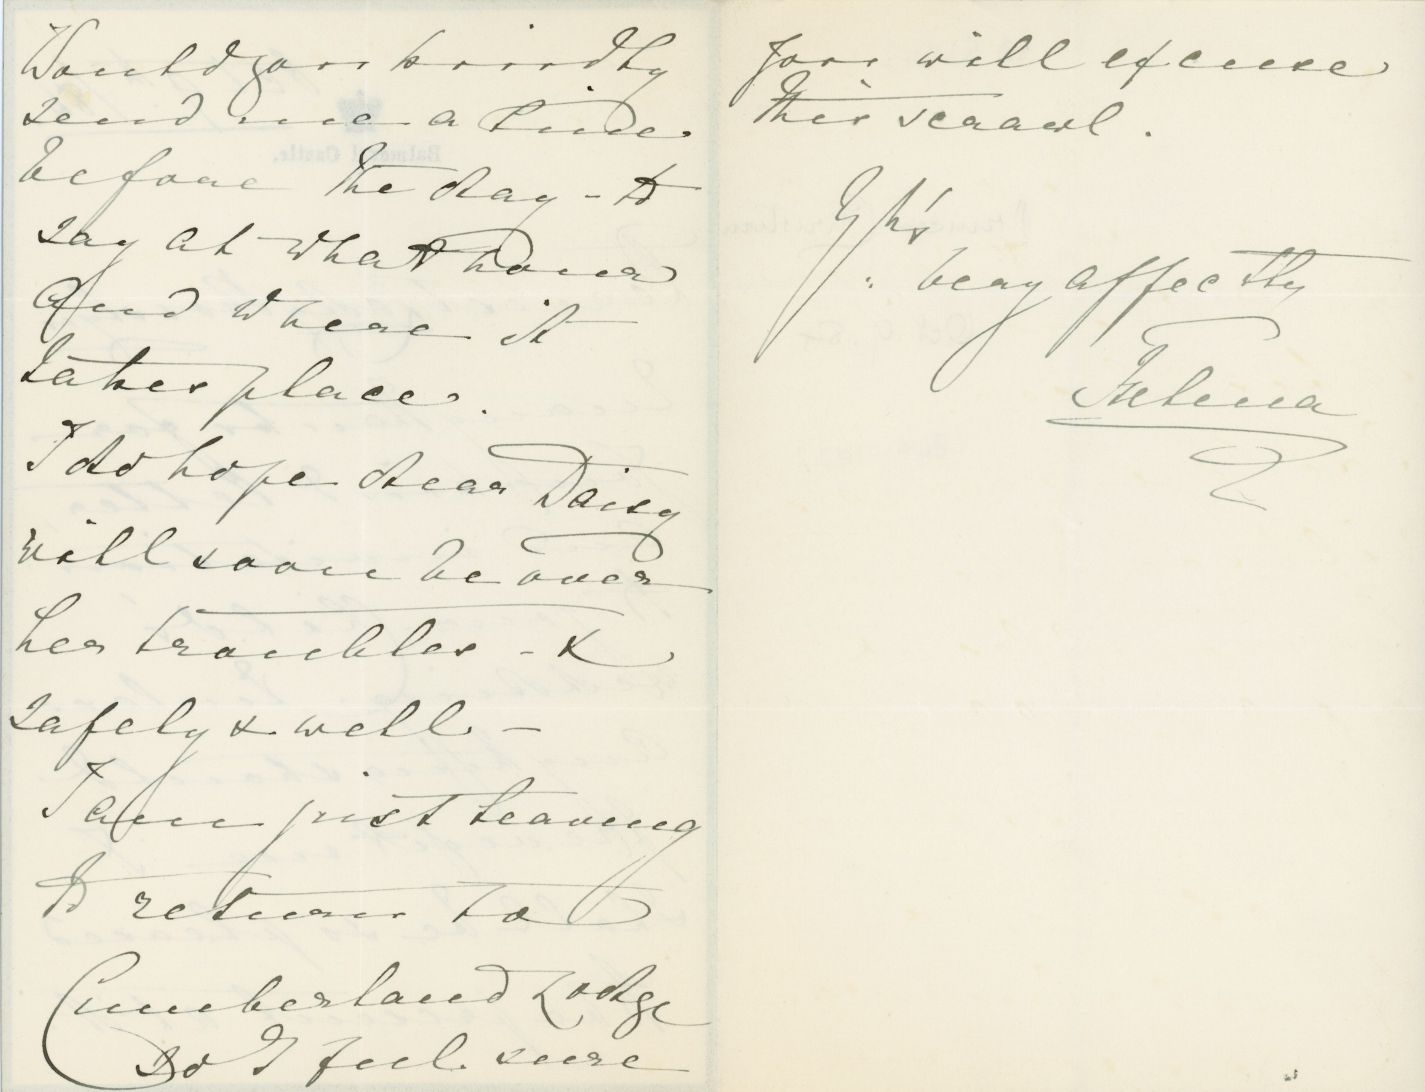 Would you kindly
send me a line
before the day - to
say at what hour
and where it
takes place.
I do hope dear Daisy
will soon be over
her troubles - &
safely & well -
I am just leaving
to return to
Cumberland Lodge
So I feel sure
you will excuse
this scrawl.
Yrs
very affectly
Helena